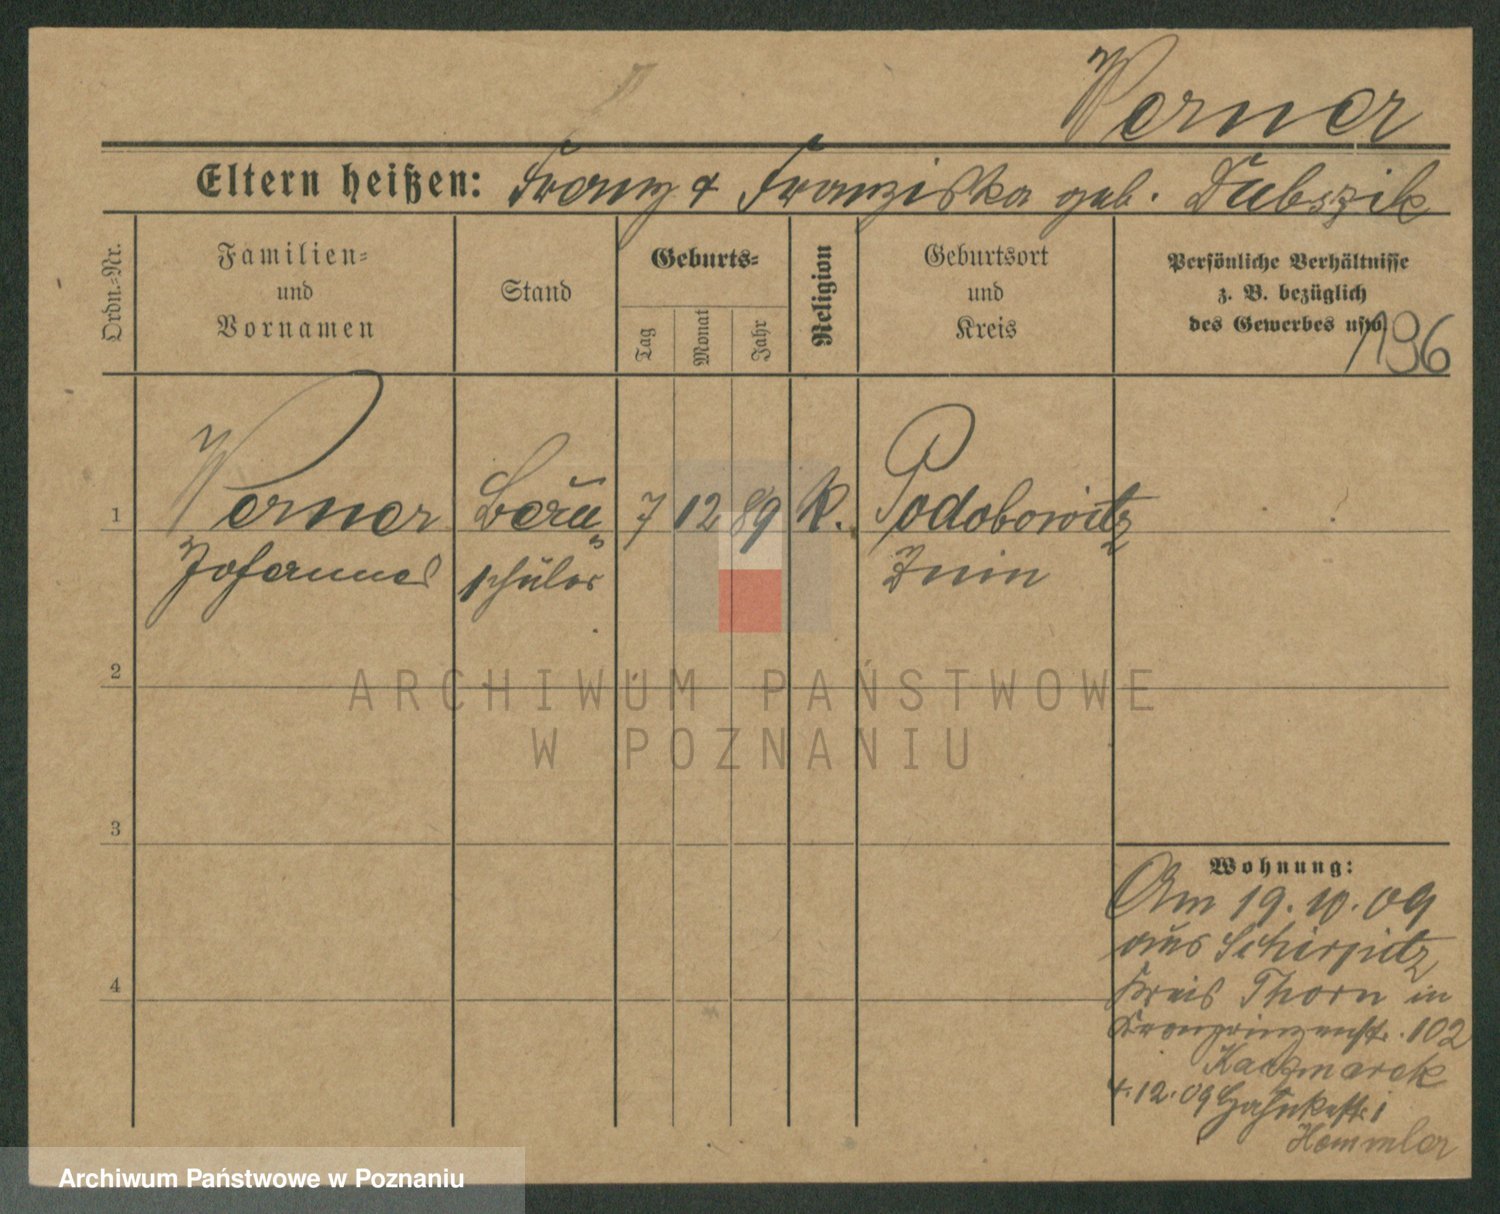 Werner
Eltern heißen: Franz & Franziska geb. Dubszik
Ordn.-Nr.
Familien-
und
Vornamen
Stand
Geburts-
Tag
Monat
Jahr
Religion
Geburtsort
und
Kreis
Persönliche Verhältnisse
z. B. bezüglich
des Gewerbes usw.
196
1 Werner Bau= 7 12 89 K. Podobowitz
Johannes schüler Znin
2
3
4
Wohnung:
Am 19.10.09
aus Schirpitz
Kreis Thorn in
Kronprinzenstr. 102
Kaczmarek
4.12.09
Hemmler
ARCHIWUM PAŃSTWOWE
W POZNANIU
Archiwum Państwowe w Poznaniu